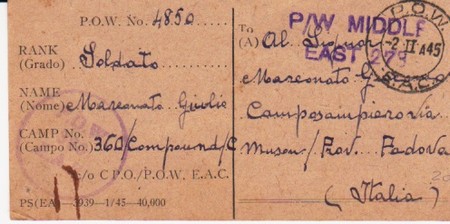 P.O.W. No. 4850
RANK
(Grado) Soldato
NAME
(Nome) Marconato Giulio
CAMP No.
(Campo No.) 360/Compound/C
c/o C P.O./P.O.W., E.A.C.
PS(EA) 3939—1/45—40,000
To
(A) Al Signor
Marconato G
Camposampiero via
Muson/Prov. Padova
(Italia)
P/W MIDDLE
EAST 279
P.O.W.
-2 II A45
E.A.C.
17